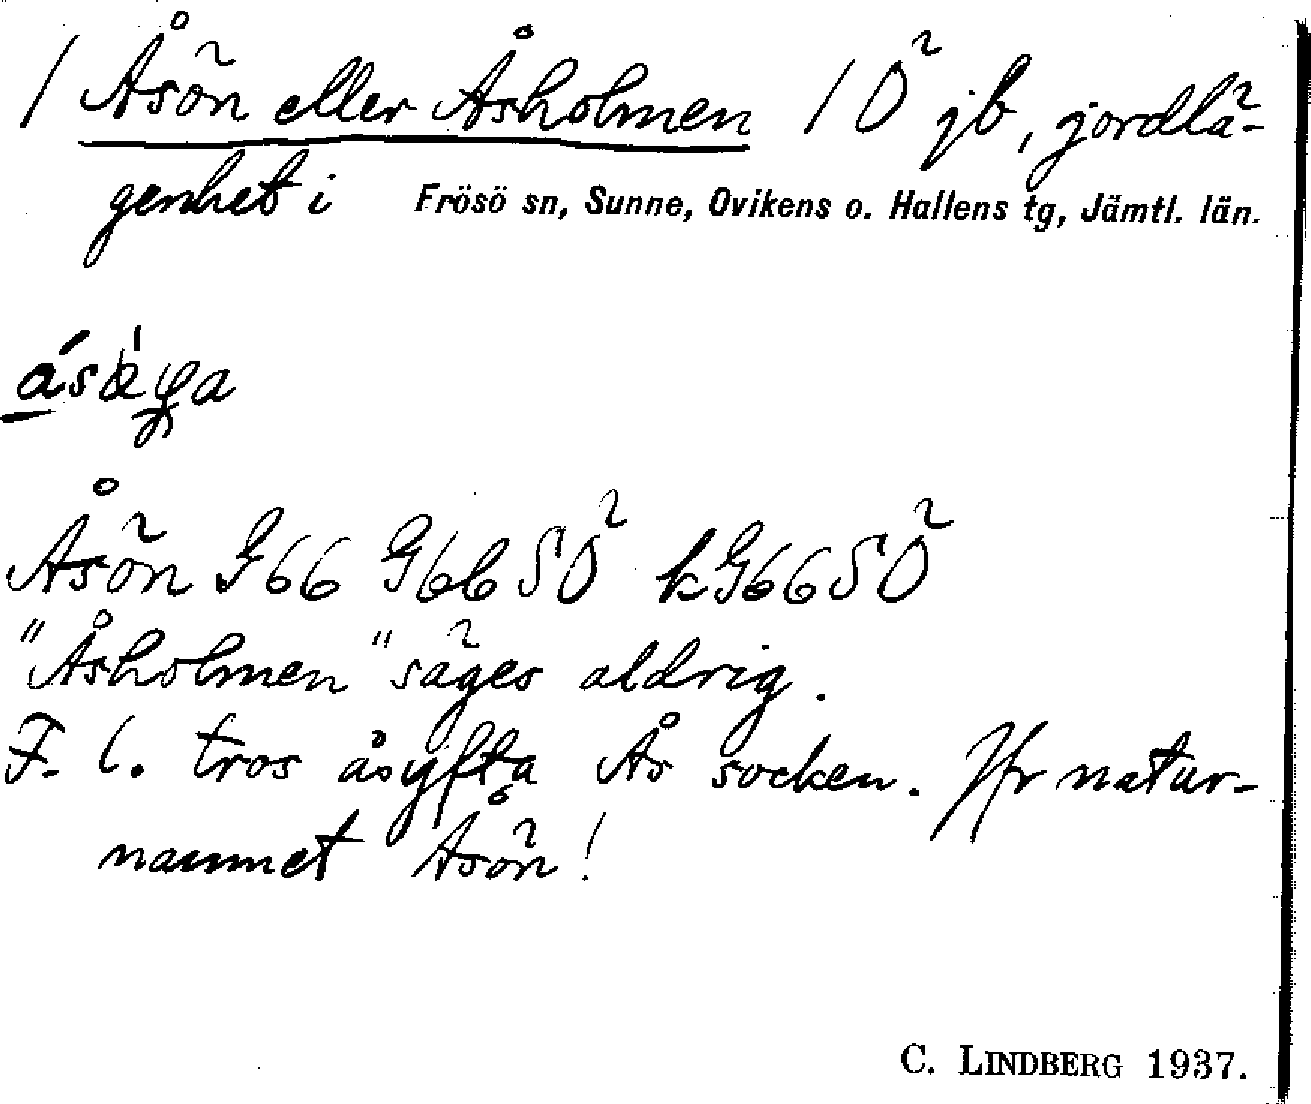 / Åsön eller Åsholmen / Ö jb, jordlä-
genhet i Frösö sn, Sunne, Ovikens o. Hallens tg, Jämtl. län.
Åsön G66 G66SÖ kG66SÖ
"Åsholmen" säges aldrig.
F. l. tros åsyfta Ås socken. Jfr natur-
namnet Åsön!
C. LINDBERG 1937.